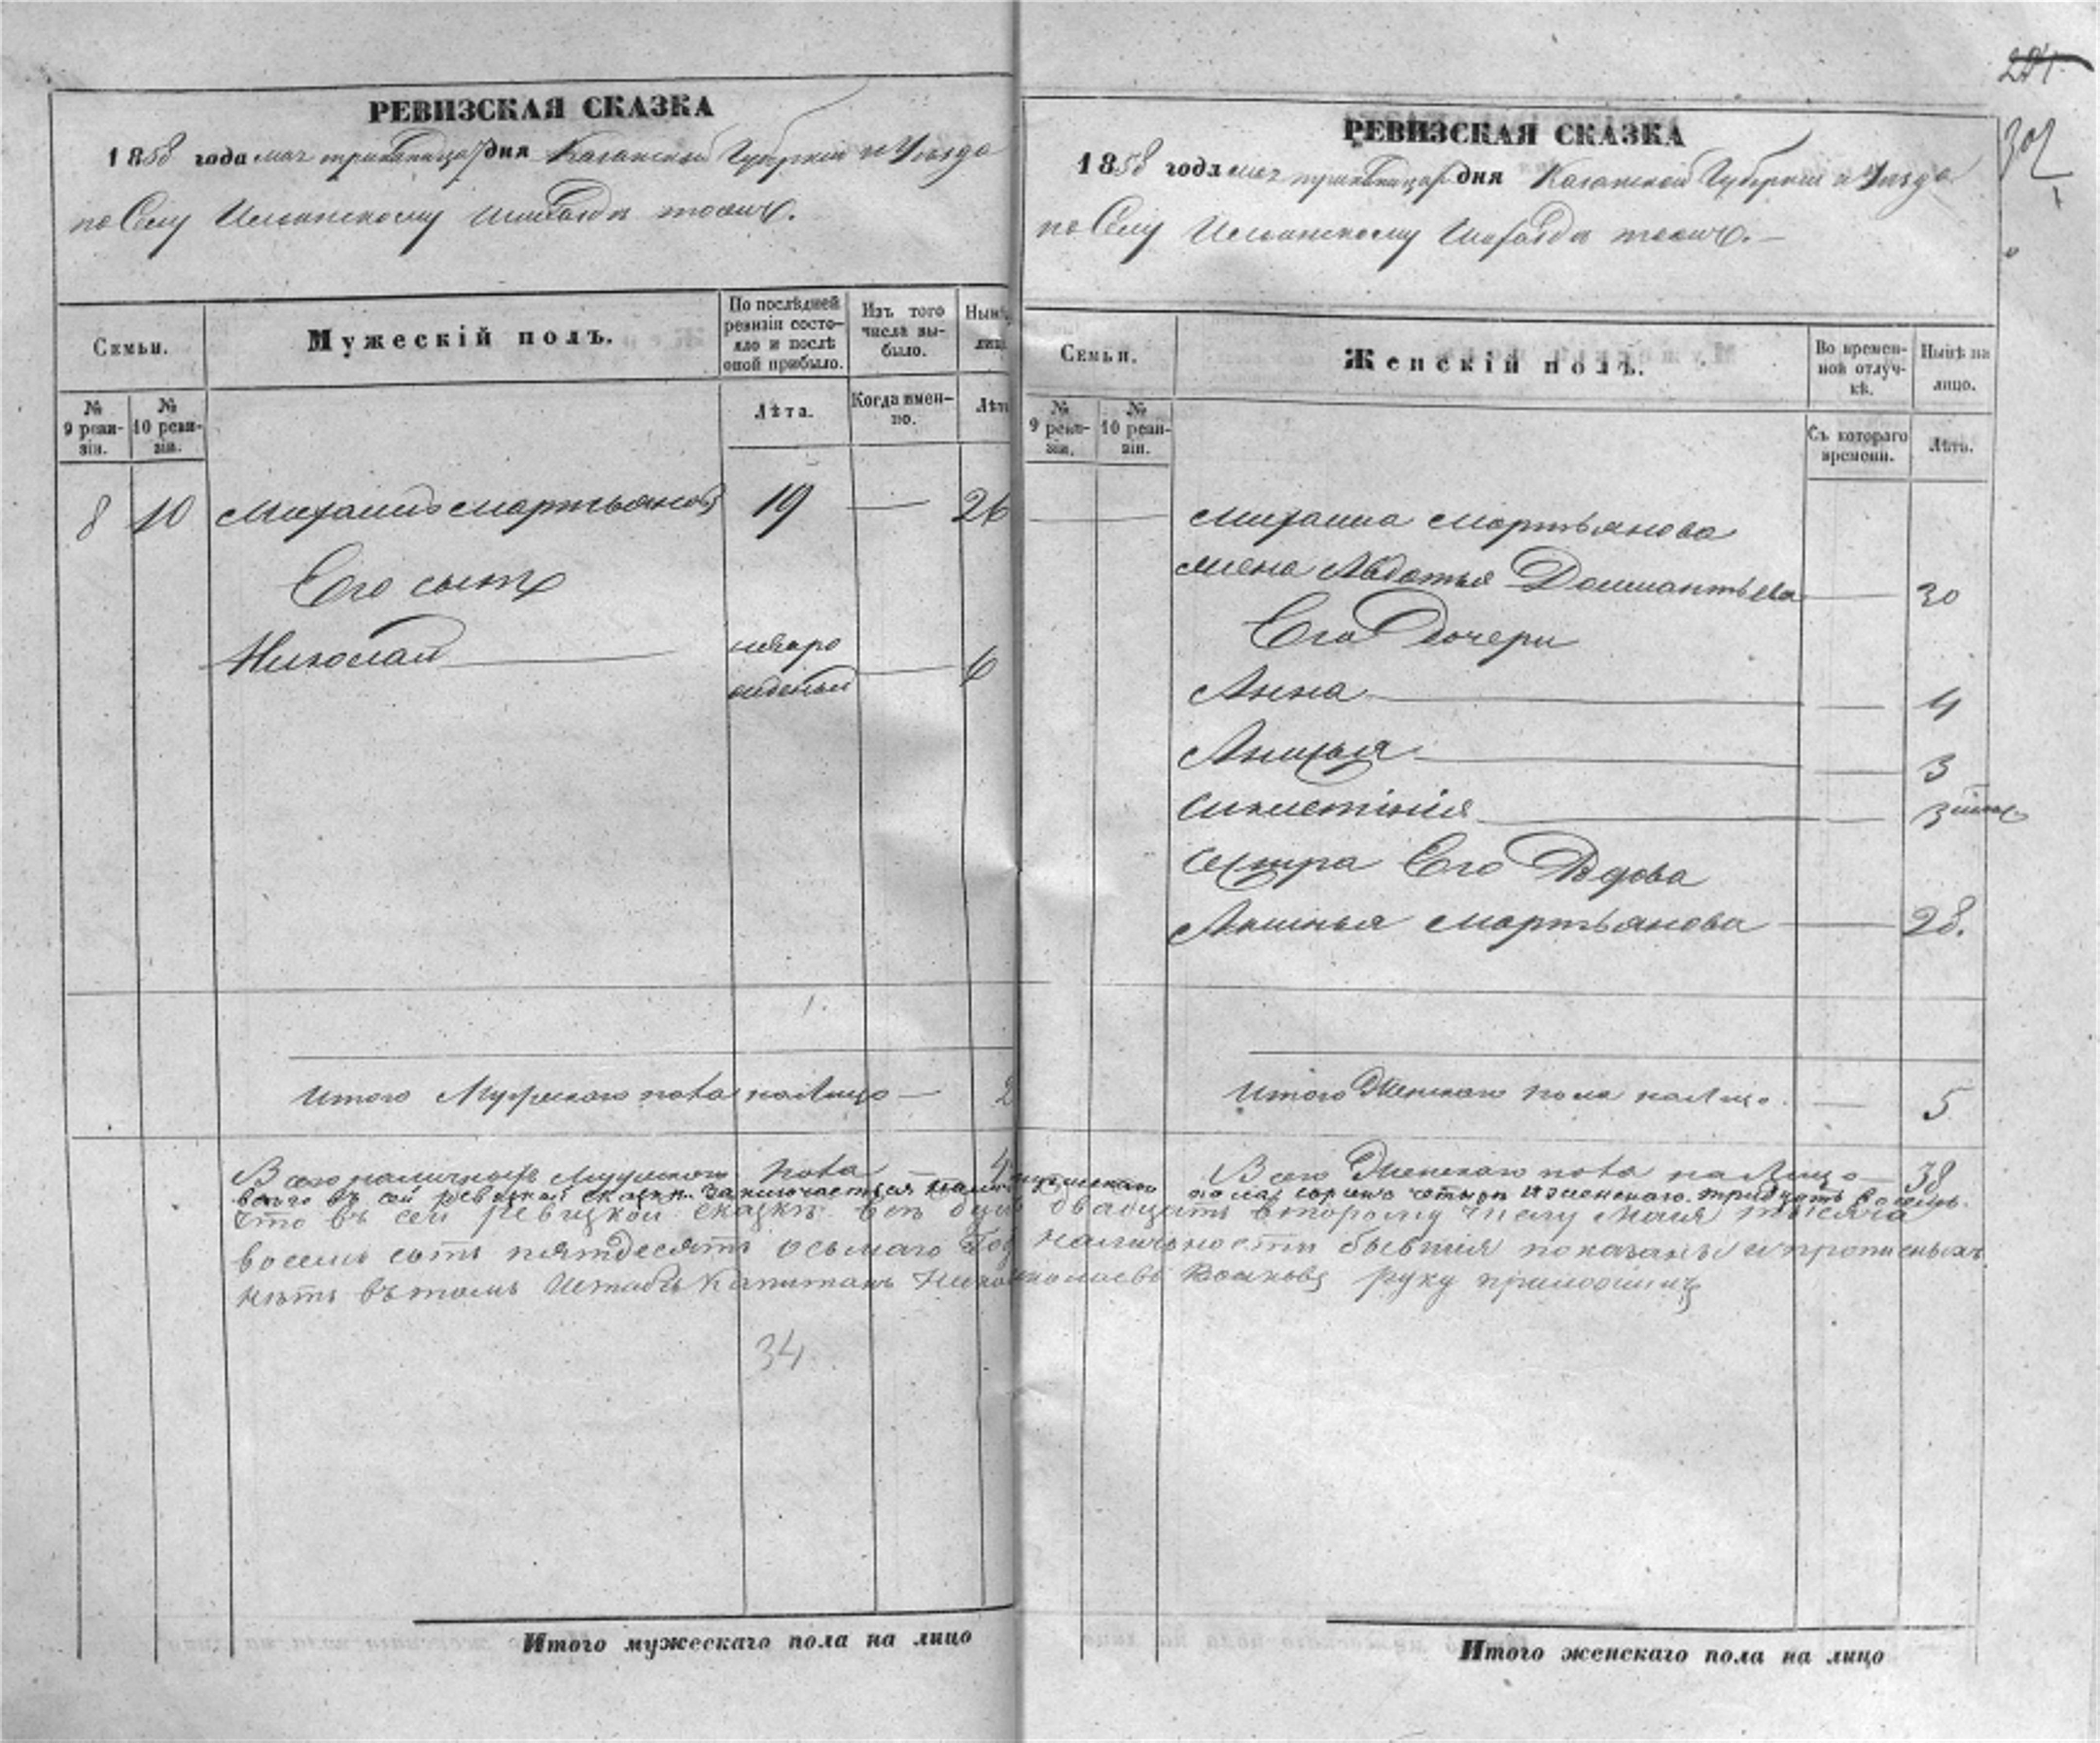 РЕВИЗСКАЯ СКАЗКА
1858 года мая дня Казанской Губерніи и Уѣзда
по Селу тожъ.
Семьи.
Мужескій полъ.
По послѣдней ревизіи состояло и послѣ оной прибыло.
Изъ того числа выбыло.
Нынѣ
лиц
№ 9 ревизіи.
№ 10 ревизіи.
Лѣта.
Когда именно.
Лѣт
8 10 Михаилъ Мартьяновъ 19 — 26
Его сынъ
Николай новорожденный — 6
Итого Мужескаго пола на лицо — 2
Всего наличныхъ Мужескаго пола
34
Итого мужескаго пола на лицо
281
302
РЕВИЗСКАЯ СКАЗКА
1858 года мая дня Казанской Губерніи и Уѣзда
по Селу тожъ.
Семьи.
Женскій полъ.
Во временной отлучкѣ.
Нынѣ на лицо.
№ 9 ревизіи.
№ 10 ревизіи.
Съ котораго времени.
Лѣта.
Михаила Мартьянова
жена Авдотья — 30
Его дочери
Анна — 4
Анисья — 3
— 3
Сестра Его Вдова
Аксинья Мартьянова — 28.
Итого Женскаго пола на лицо — 5
Всего Женскаго пола на лицо — 38
всего въ сей ревизской сказкѣ заключается мужескаго пола сорокъ четыре и женскаго тридцать восемь.
что въ сей ревизкой сказкѣ всѣ двадцать второму числу Маія тысяча
восемь сотъ пятдесятъ осьмаго наличности бывшія показаны и прописныхъ
нѣтъ въ томъ Штабсъ Капитанъ руку приложилъ
Итого женскаго пола на лицо